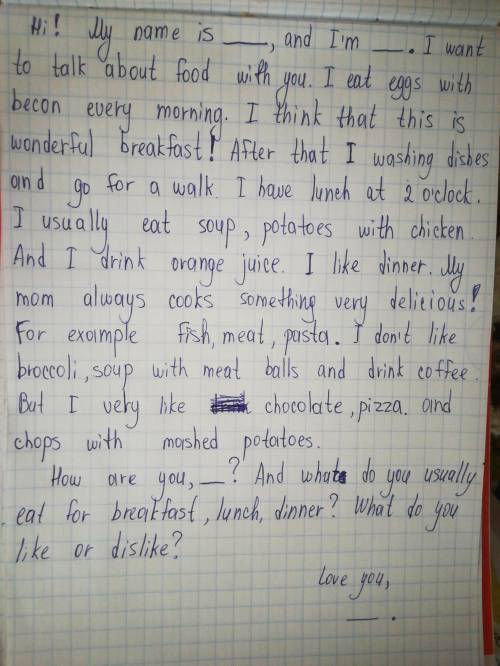 Hi! My name is ____, and I'm ___. I want
to talk about food with you. I eat eggs with
becon every morning. I think that this is
wonderful breakfast! After that I washing dishes
and go for a walk. I have lunch at 2 o'clock.
I usually eat soup, potatoes with chicken.
And I drink orange juice. I like dinner. My
mom always cooks something very delicious!
For example fish, meat, pasta. I don't like
broccoli, soup with meat balls and drink coffee.
But I very like chocolate, pizza. and
chops with mashed potatoes.
How are you, __? And what do you usually
eat for breakfast, lunch, dinner? What do you
like or dislike?
Love you,
___.